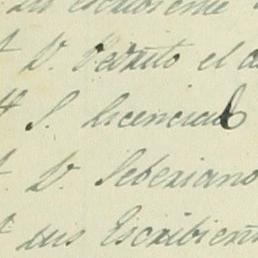 su escribiente
D. Pedrito el
S. Licenciad
D. Seberiano
sus Escribien